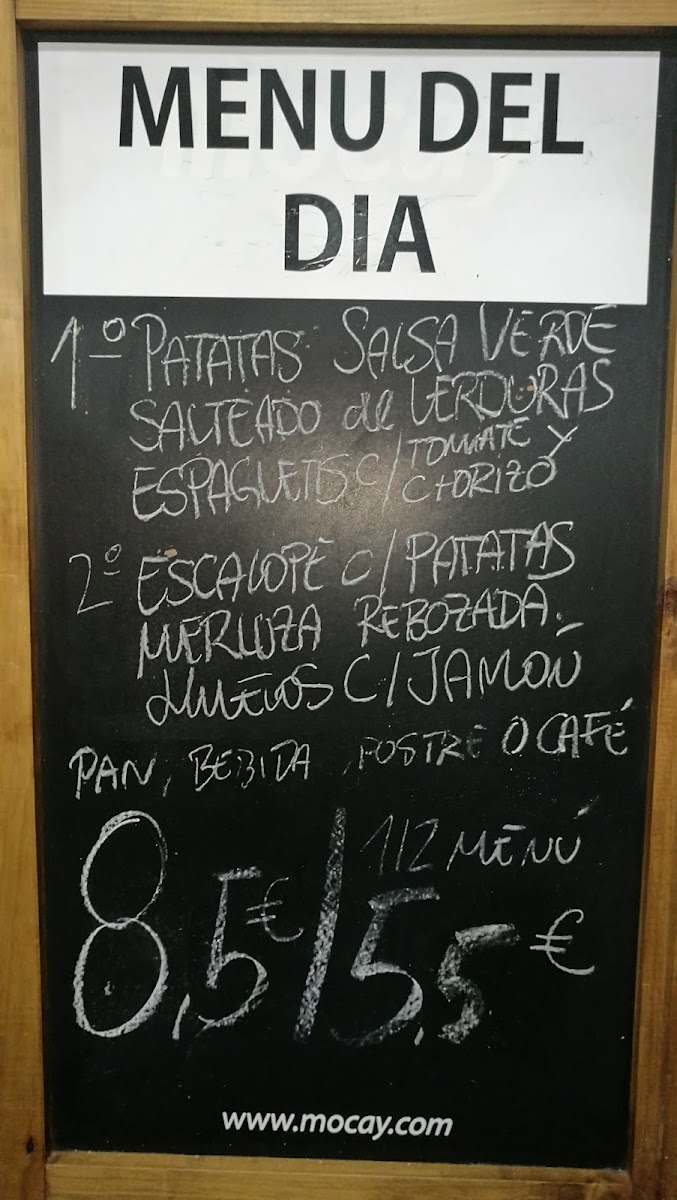 MENU DEL
DIA
1º PATATAS SALSA VERDE
SALTEADO de VERDURAS
ESPAGUETIS C/ TOMATE Y
CHORIZO
2º ESCALOPE C/ PATATAS
MERLUZA REBOZADA.
HUEVOS C/ JAMÓN
PAN, BEBIDA, POSTRE O CAFÉ
1/2 MENÚ
8,5€ / 5,5 €
www.mocay.com